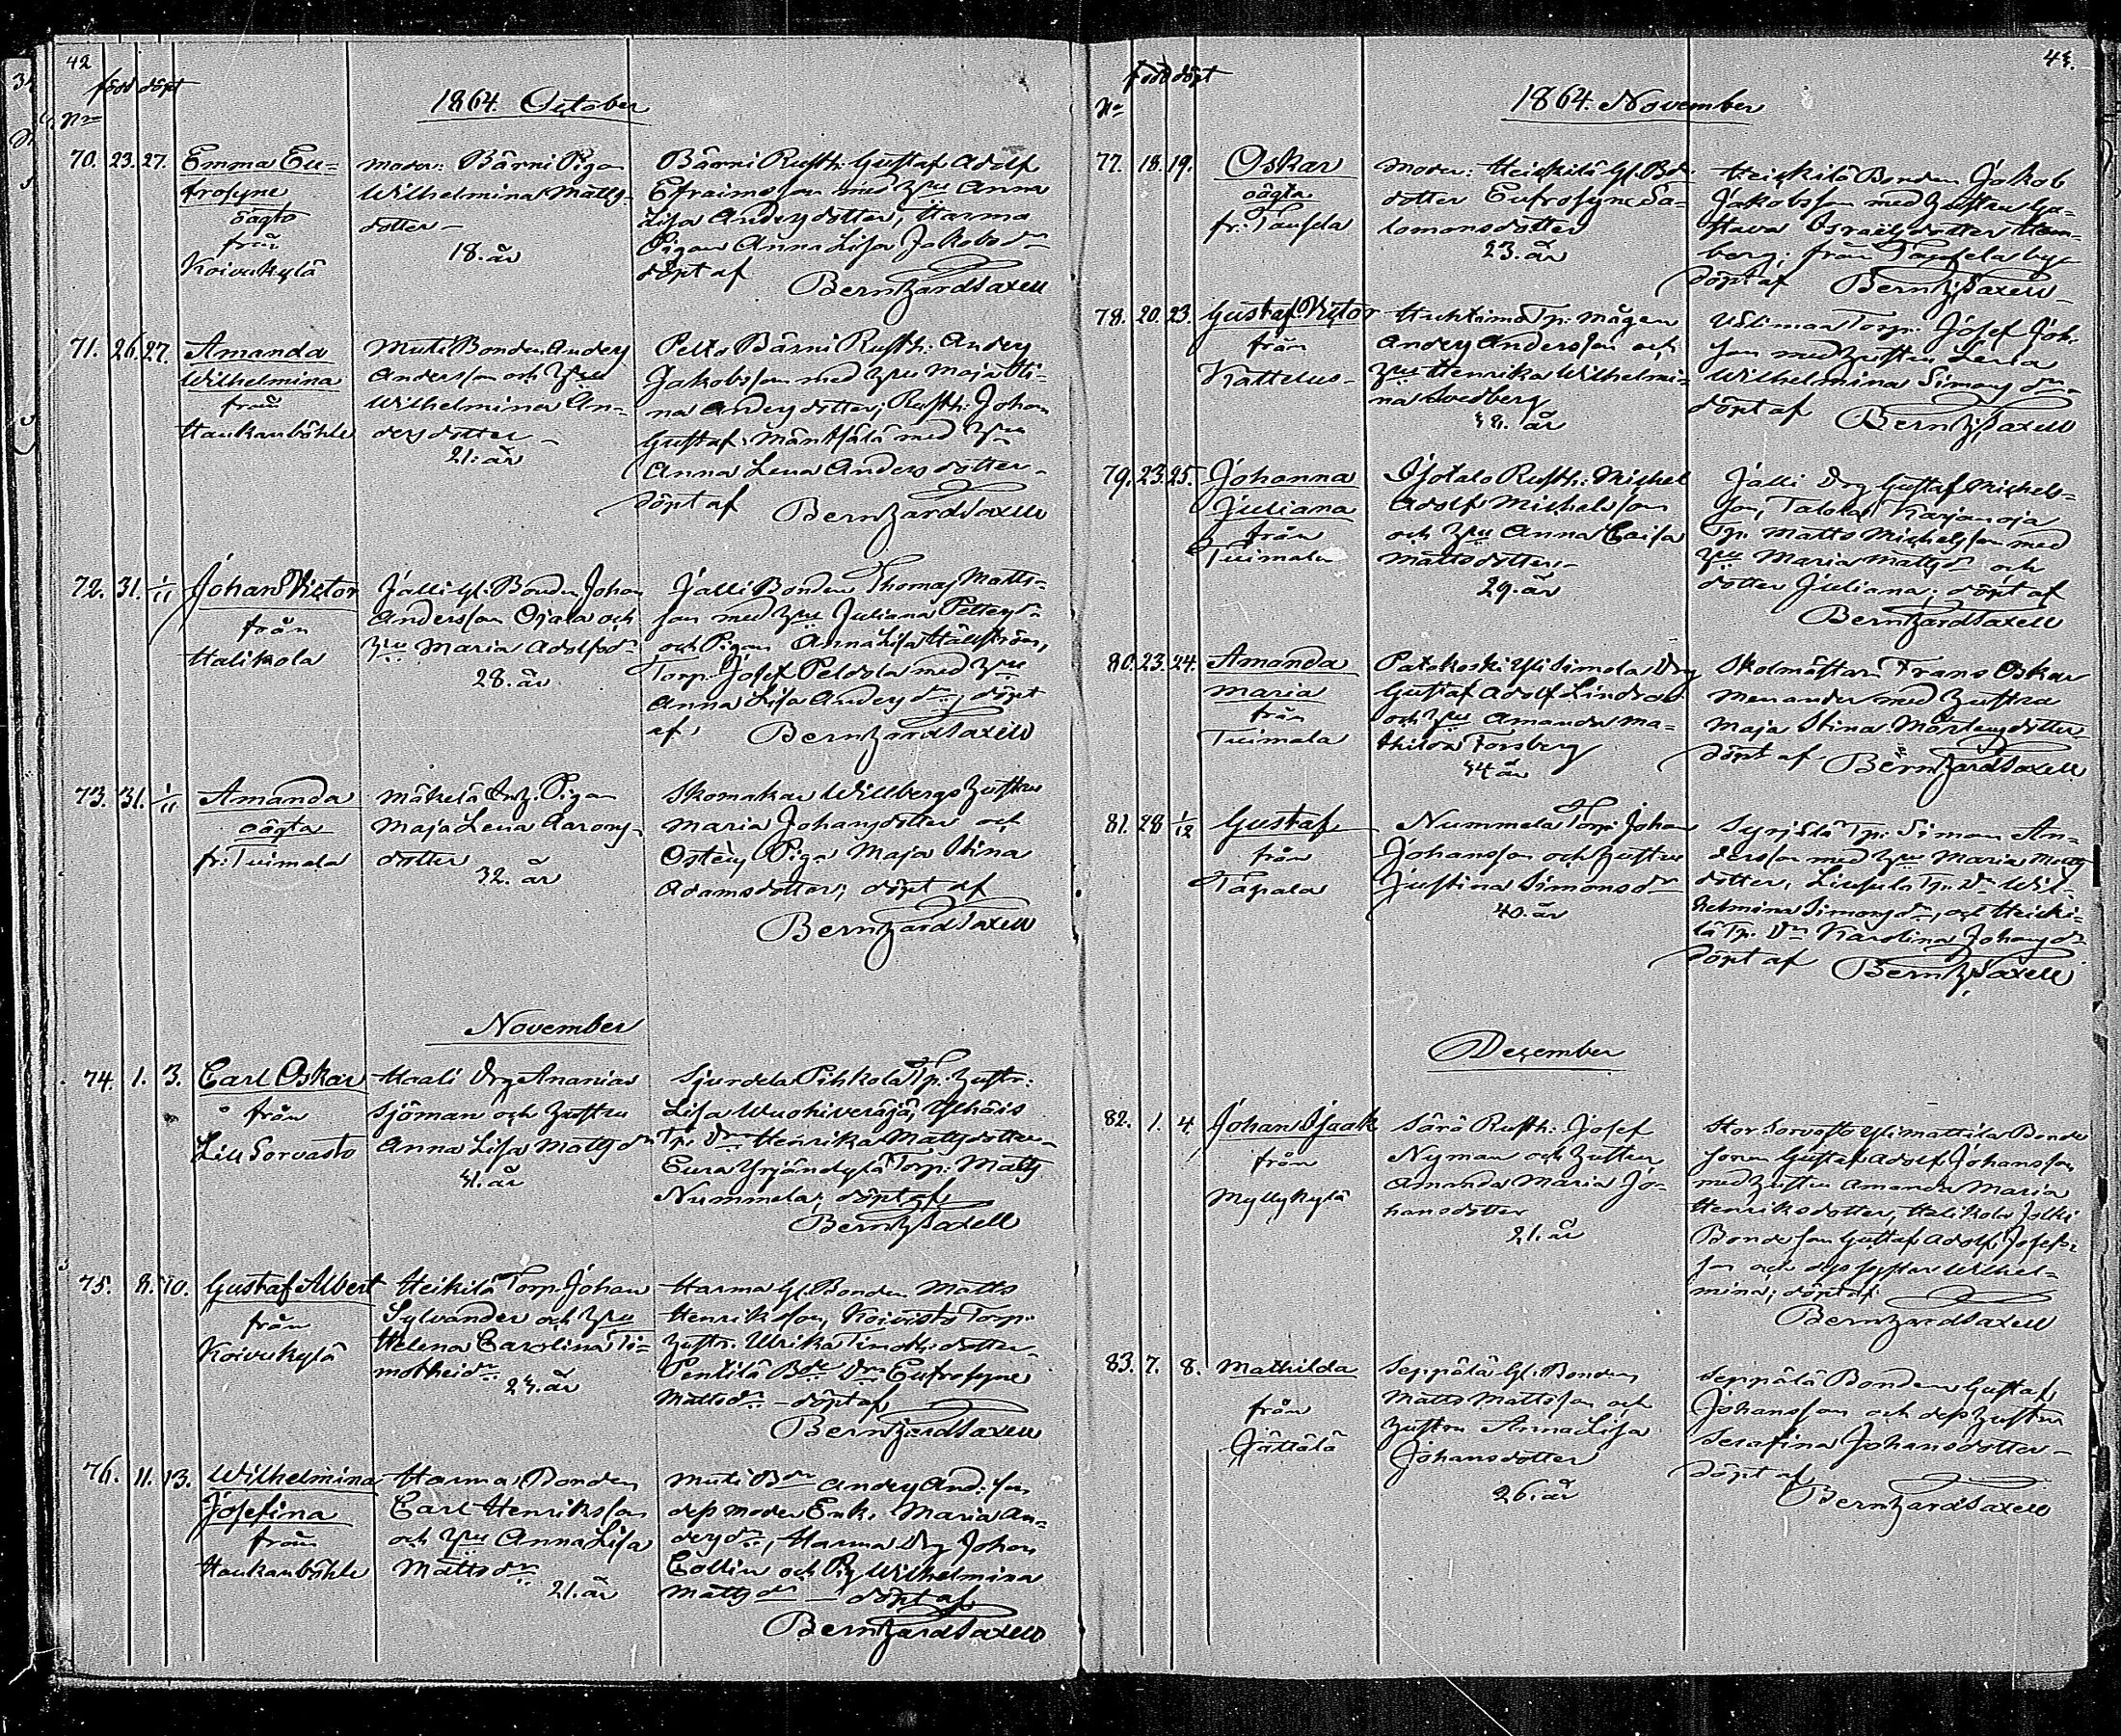 42
född döpt
Nro
1864. October
70. 23. 27.
Emma Eu-
frosyne
oägta
från
Koivukylä
moder: Bärni Pigan
Wilhelmina Matts-
dotter -
18. år
Bärni Rusth. Gustaf Adolf
Efraimsson med h:u Anna
Lisa Andersdotter, Harma
Pigan Anna Lisa Jakobsd:r
döpt af
Berntzardsaxell
71. 26. 27.
Amanda
Wilhelmina
från
Haukanböhle
Muti Bonden Anders
Andersson och h:u
Wilhelmina An-
dersdotter -
21. år
Pelto Bärni Rusth. Anders
Jakobsson med h:u Maja Sti-
na Andersdotter; Rusth. Johan
Gustaf Mäntsälä med h:u
Anna Lena Andersdotter -
döpt af
Berntzardsaxell
72. 31. 1/11
Johan Victor
från
Halikola
Jalli gl. Bonden Johan
Andersson Ojala och
h:u Maria Adolfsd:r
28. år
Jalli Bonden Thomas Matts-
son med h:u Juliana Pettersd:r
och Pigan Anna Lisa Hällström,
Torp. Josef Peldola med h:u
Anna Lisa Andersd:r; döpt
af,
Berntzardsaxell
73. 31. 1/11
Amanda
oägta
fr: Tuimala
Mäkelä Pigan
Maja Lena Aarons-
dotter
32. år
Skomakar Willbergs hustru
Maria Johansdotter och
Ostens Piga Maja Stina
Adamsdotter; döpt af
Berntzardsaxell
November
74. 1. 3.
Carl Oskar
från
Lill Sorvasto
Haali Drg Ananias
Sjöman och hustru
Anna Lisa Mattsd:r
31. år
Sjurdela Pihkola Tp: hustr:
Lisa Wuohiveräjä, Ylhäis
Tp. D:r Henrika Mattsdotter -
Eura Yrjänäkylä Torp. Matts
Nummela; döpt af
Berntzsaxell
75. 8. 10.
Gustaf Albert
från
Koivukylä
Heikilä Torp. Johan
Sylvander och h:u
Helena Carolina Ti-
motheid:r
23. år
Harma gl. Bonden Matts
Henriksson, Koivisto Torp.
hustr. Ulrika Timoth:dotter -
Pentilä B:de D:r Eufrosyne
Mattsd:r - döpt af
Berntzardsaxell
76. 11. 13.
Wilhelmina
Josefina
från
Haukanböhle
Harma Bonden
Carl Henriksson
och h:u Anna Lisa
Mattsd:r
21. år
Muti B:de Anders And:son
dess moder Enk. Maria An-
dersd:r, Harma Drg Johan
Collin och Pig Wilhelmina
Mattsd:r - döpt af
Berntzardsaxell
43.
född döpt
No
1864. November
77. 18. 19.
Oskar
oägta
fr: Taufela
moder: Heickilä gl. Bd:
dotter Eufrosyne Sa-
lomonsdotter
23. år
Heickilä Bonden Jakob
Jakobsson med hustru Gu-
stava Israelsdotter Ham-
berg; från Taufela by -
döpt af Berntzsaxell
78. 20. 23.
Gustaf Victor
från
Kättelus -
Huhtamo Tp: mågen
Anders Andersson och
h:u Henrika Wilhelmi-
na Svedberg
år
Välimaa Torp. Josef Joh.
son med hustru Lena
Wilhelmina Simonsd:r -
döpt af Berntzsaxell
79. 23. 25.
Johanna
Juliana
från
Tuimala
Isotalo Rusth: Michel
Adolf Michelsson
och h:u Anna Caisa
Mattsdotter -
29. år
Jalli Drg Gustaf Michels-
son, Talola Karjanoja
Tp. Matts Michelsson med
h:u Maria Mattsd:r och
dotter Juliana; döpt af
Berntzardsaxell
80. 23. 24.
Amanda
Maria
från
Tuimala
Patokoski Yli Simola Drg
Gustaf Adolf Lindroos
och h:u Amanda Ma-
thilda Forsberg
34 år
Skolmästar Frans Oskar
Menander med hustru
Maja Stina Mårtensdotter
döpt af Berntzardsaxell
81. 28 1/12
Gustaf
från
Tapala
Nummela Torp: Johan
Johansson och hustru
Justina Simonsd:r
40. år
Syrjälä Tp: Simon An-
dersson med h:u Maria Matts
dotter, Liusula Tp. D:r Wil-
helmina Simonsd:r, och Heicki-
lä Tp. D:r Karolina Johansd:r
döpt af Berntzsaxell
December
82. 1. 4.
Johan Isaak
från
Myllykylä
Särä Rusth. Josef
Nyman och hustru
Amanda Maria Jo-
hansdotter
21. år
Stor Sorvasto Yli mattila Bonde
sonen Gustaf Adolf Johansson
med hustru Amanda Maria
Henriksdotter, Halikola Jolki
Bondeson Gustaf Adolf Josefs-
son och dess syster Wilhel-
mina; döpt af
Berntzardsaxell
83. 7. 8.
Mathilda
från
Jättälä
Seppälä gl. Bonden
Matts Mattsson och
hustru Anna Lisa
Johansdotter
26. år
Seppälä Bonden Gustaf
Johansson och dess hustru
Serafina Johansdotter -
döpt af
Berntzardsaxell